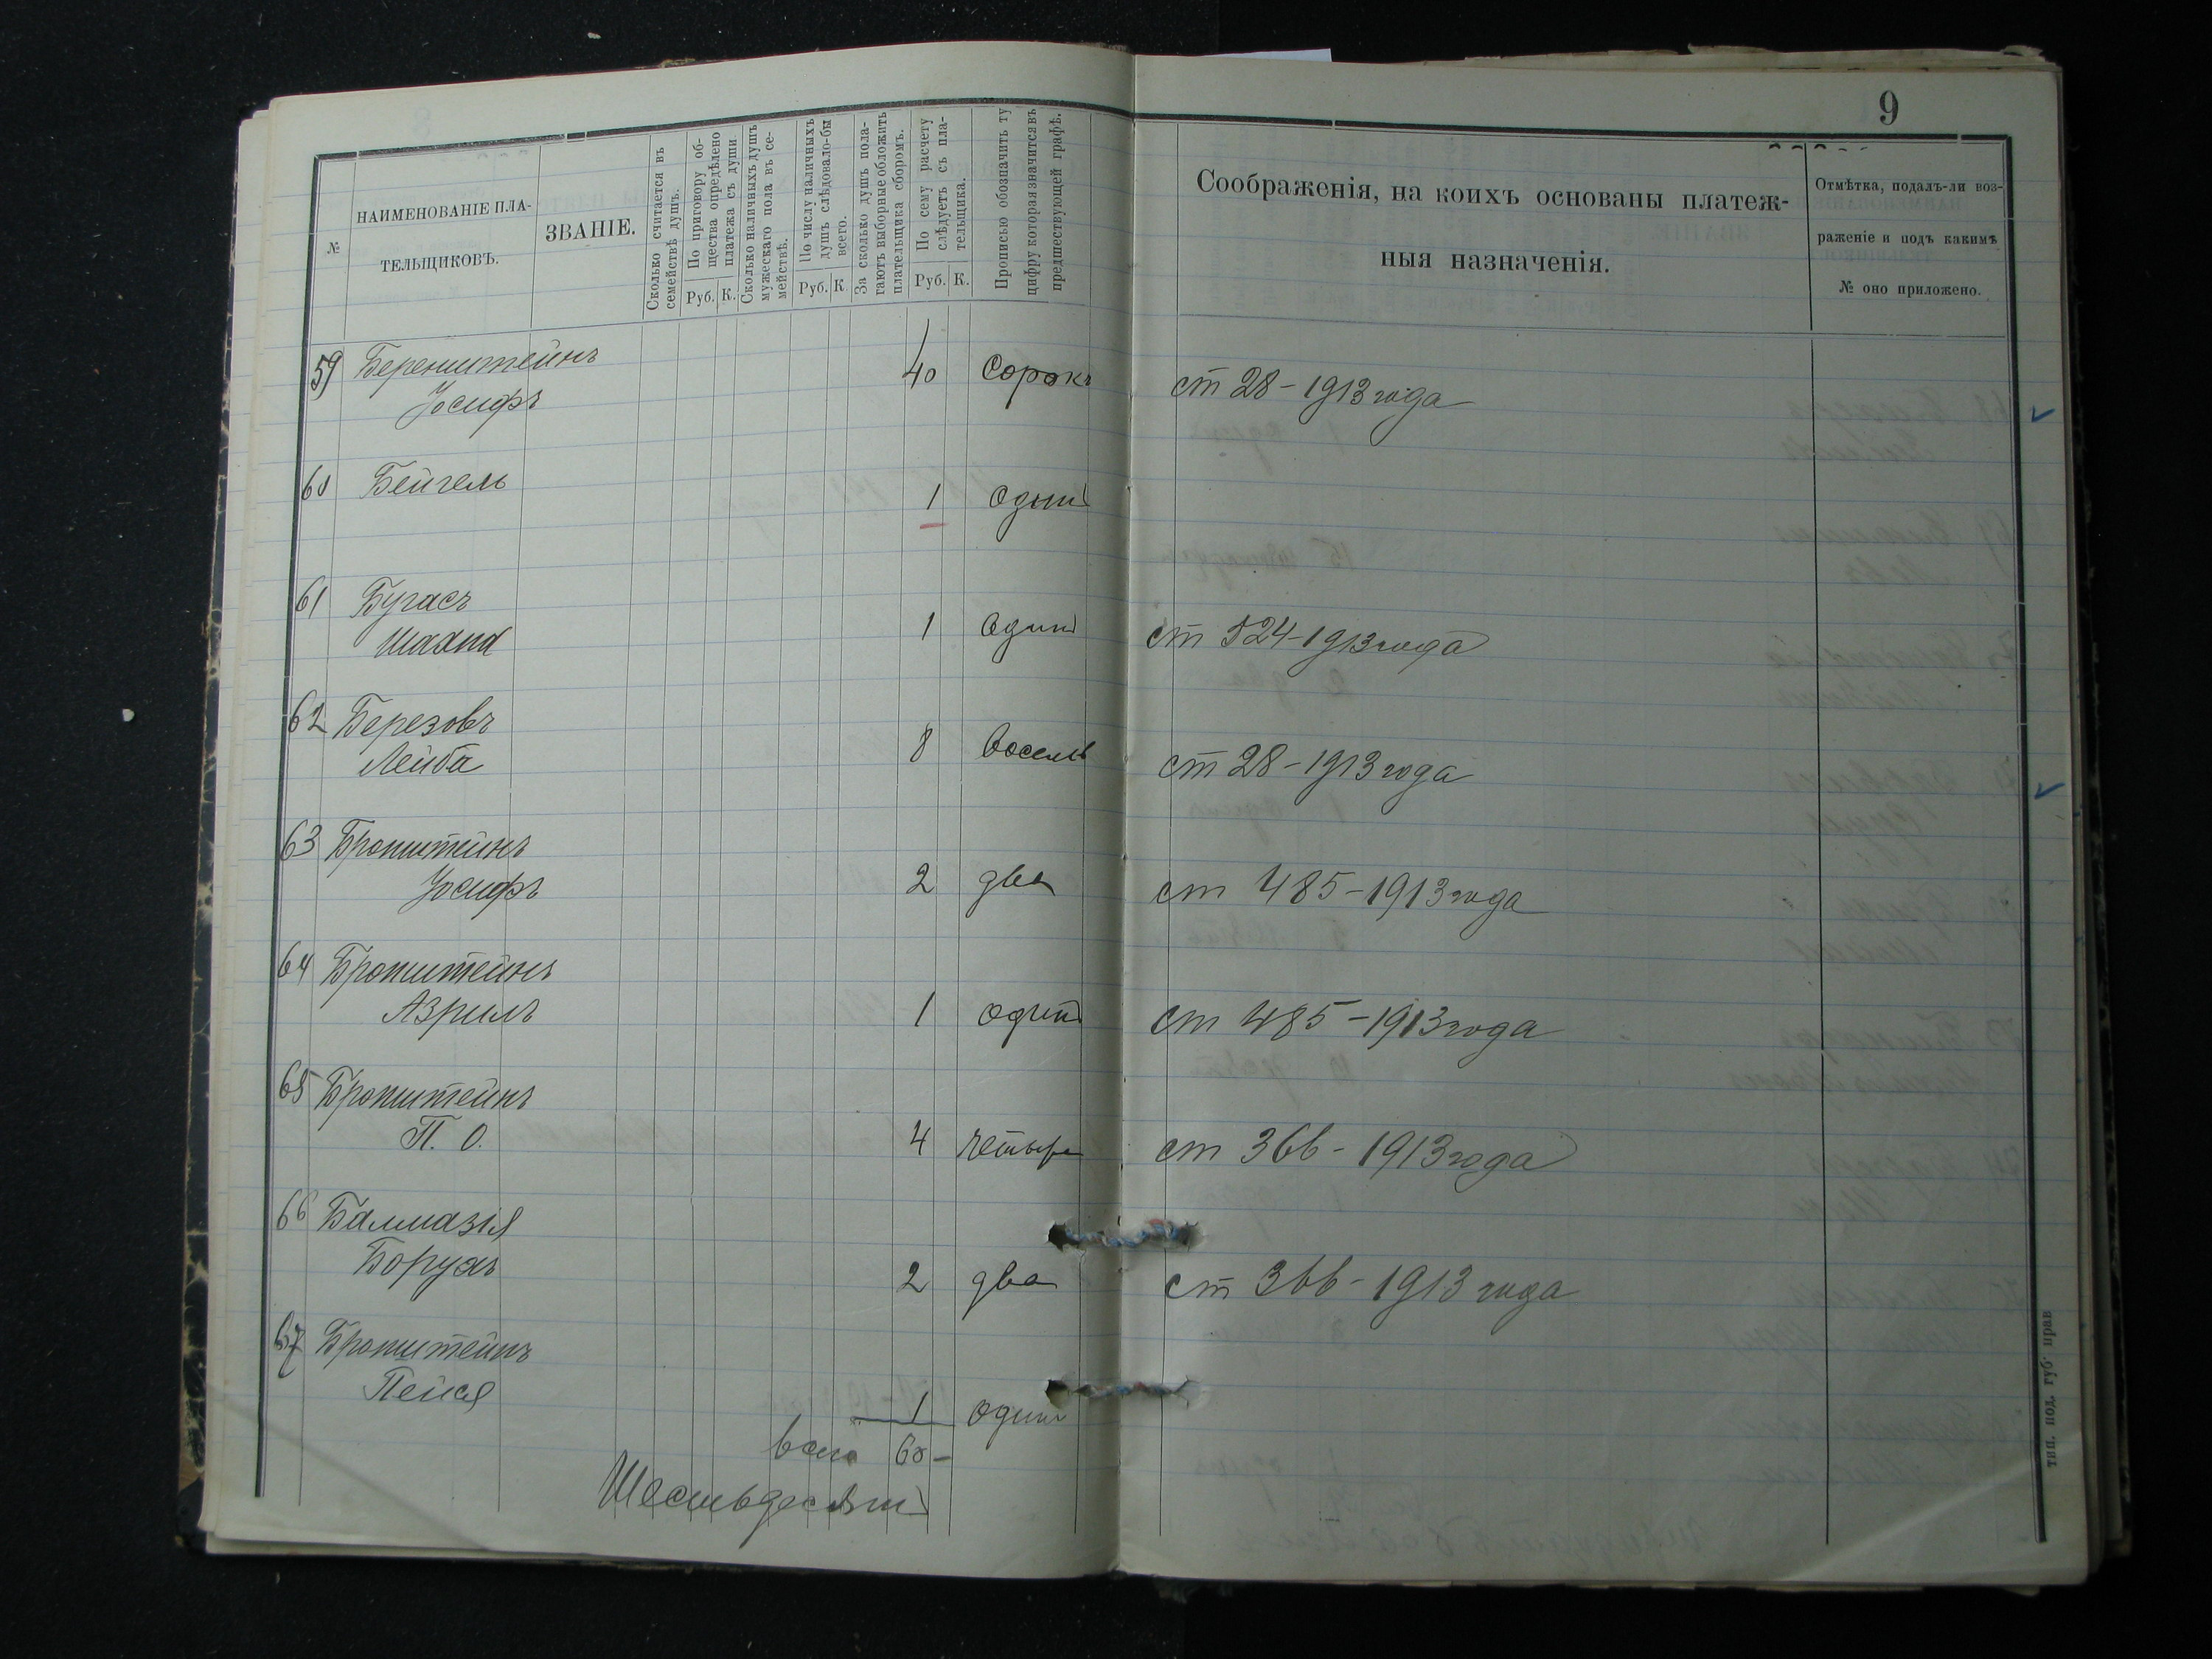 9
№
НАИМЕНОВАНІЕ ПЛА-
ТЕЛЬЩИКОВЪ.
ЗВАНІЕ.
Сколько считается въ
семействѣ душъ.
По приговору об-
щества опредѣлено
платежа съ души.
Руб. К.
Сколько наличныхъ душъ
мужескаго пола въ се-
мействѣ.
По числу наличныхъ
душъ слѣдовало-бы
всего.
Руб. К
За сколько душъ пола-
гаютъ выборные обложить
плательщика сборомъ.
По сему расчету
слѣдуетъ съ пла-
тельщика.
Руб. К.
Прописью обозначить ту
цифру которая значится въ
предшествующей графѣ.
Соображенія, на коихъ основаны платеж-
ныя назначенія.
Отмѣтка, подалъ-ли воз-
раженіе и подъ какимъ
№ оно приложено.
59 Беренштейнъ
Іосифъ 40 Сорокъ ст 28-1913 года
60 Бейгель 1 Одинъ
61 Бугасъ
1 Одинъ ст 524-1913 года
62 Березовъ
Лейба 8 Восемь ст 28-1913 года
63 Бронштейнъ
Іосифъ 2 два ст 485-1913 года
64 Бронштейнъ
Азриль 1 Одинъ ст 485-1913 года
65 Бронштейнъ
П. О. 4 Четыре ст 366-1913 года
66 Балмазія
Борухъ 2 два ст 366-1913 года
67 Бронштейнъ
Пейся 1 Один
Всего 60-
Шестьдесятъ
тип. под. губ. прав